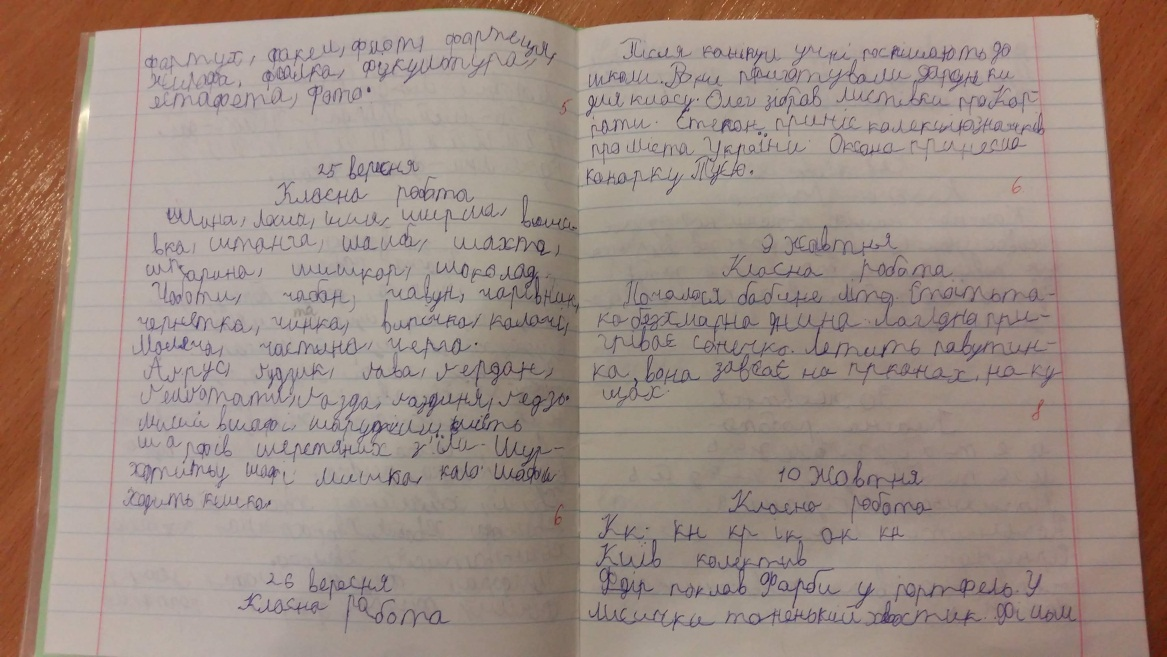 фартух, факел, фиотя фортеція,
жирафа, фіалка, фізкультура,
естафета, фото.
5
25 вересня
Класна робота
Шина, лоша, шия, ширма, виши-
вка, штанга, шайба, шахта,
шпарина, шишкар, шоколад.
Чоботи, чабан, чавун, чарівник,
чернетка, чинка, вирічка, калачі,
Маляча, частина, черга.
Аґрус, ґудзик, ґава, ґердан,
ґелґотати, ґазда, ґаздиня, ґедзь.
миші в шафі шість
шарфів шерстяних з'їли. Шур-
хотить у шафі мишка, коло шафи
ходить кішка.
6
26 вересня
Класна робота
Після канікул учні поспішають до
школи. Вони приготували дарунки
для класу. Олег зібрав листівки про Кар-
пати. Степан приніс колекцію значків
про міста України. Оксана принесла
канарку Пусю.
6
9 Жовтня
Класна робота
Почалося бабине літо. Стоїть та-
ка безхмарна днина. Лагідна при-
гріває сонечко. Летить павутин-
ка, вона зависає на парканах, на ку
щах.
8
10 Жовтня
Класна робота
Кк. кн кр ік ок кн
Київ колектив
Федір поклав Фарби у портфель. У
Лисички тоненький хвостик.